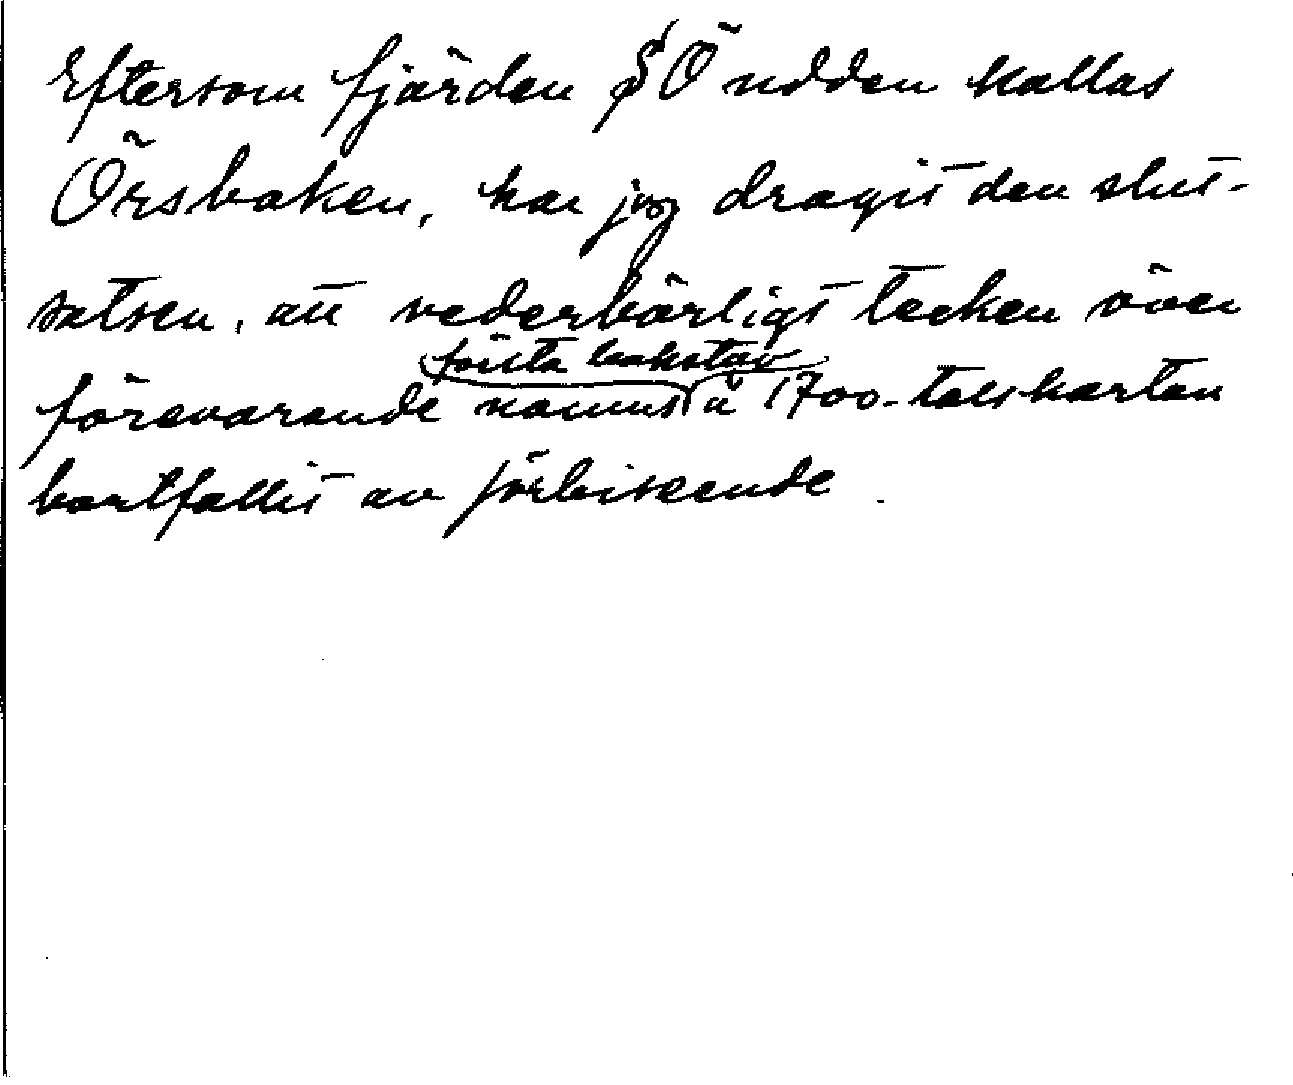 Eftersom fjärden S Ö udden kallas
Örsbaken, har jag dragit den slut-
satsen, att vederbörligt tecken över
första bokstav
förevarande namns å 1700-talskartan
bortfallit av förbiseende.